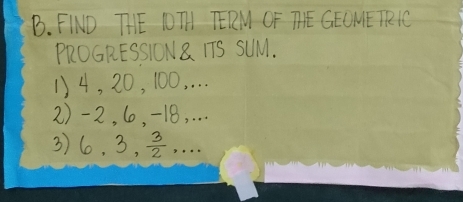 B. FIND THE 10TH TERM OF THE GEOMETRIC
PROGRESSION & ITS SUM.
1) 4, 20, 100,...
2) -2, 6, -18,...
3) 6, 3, 3/2, ....